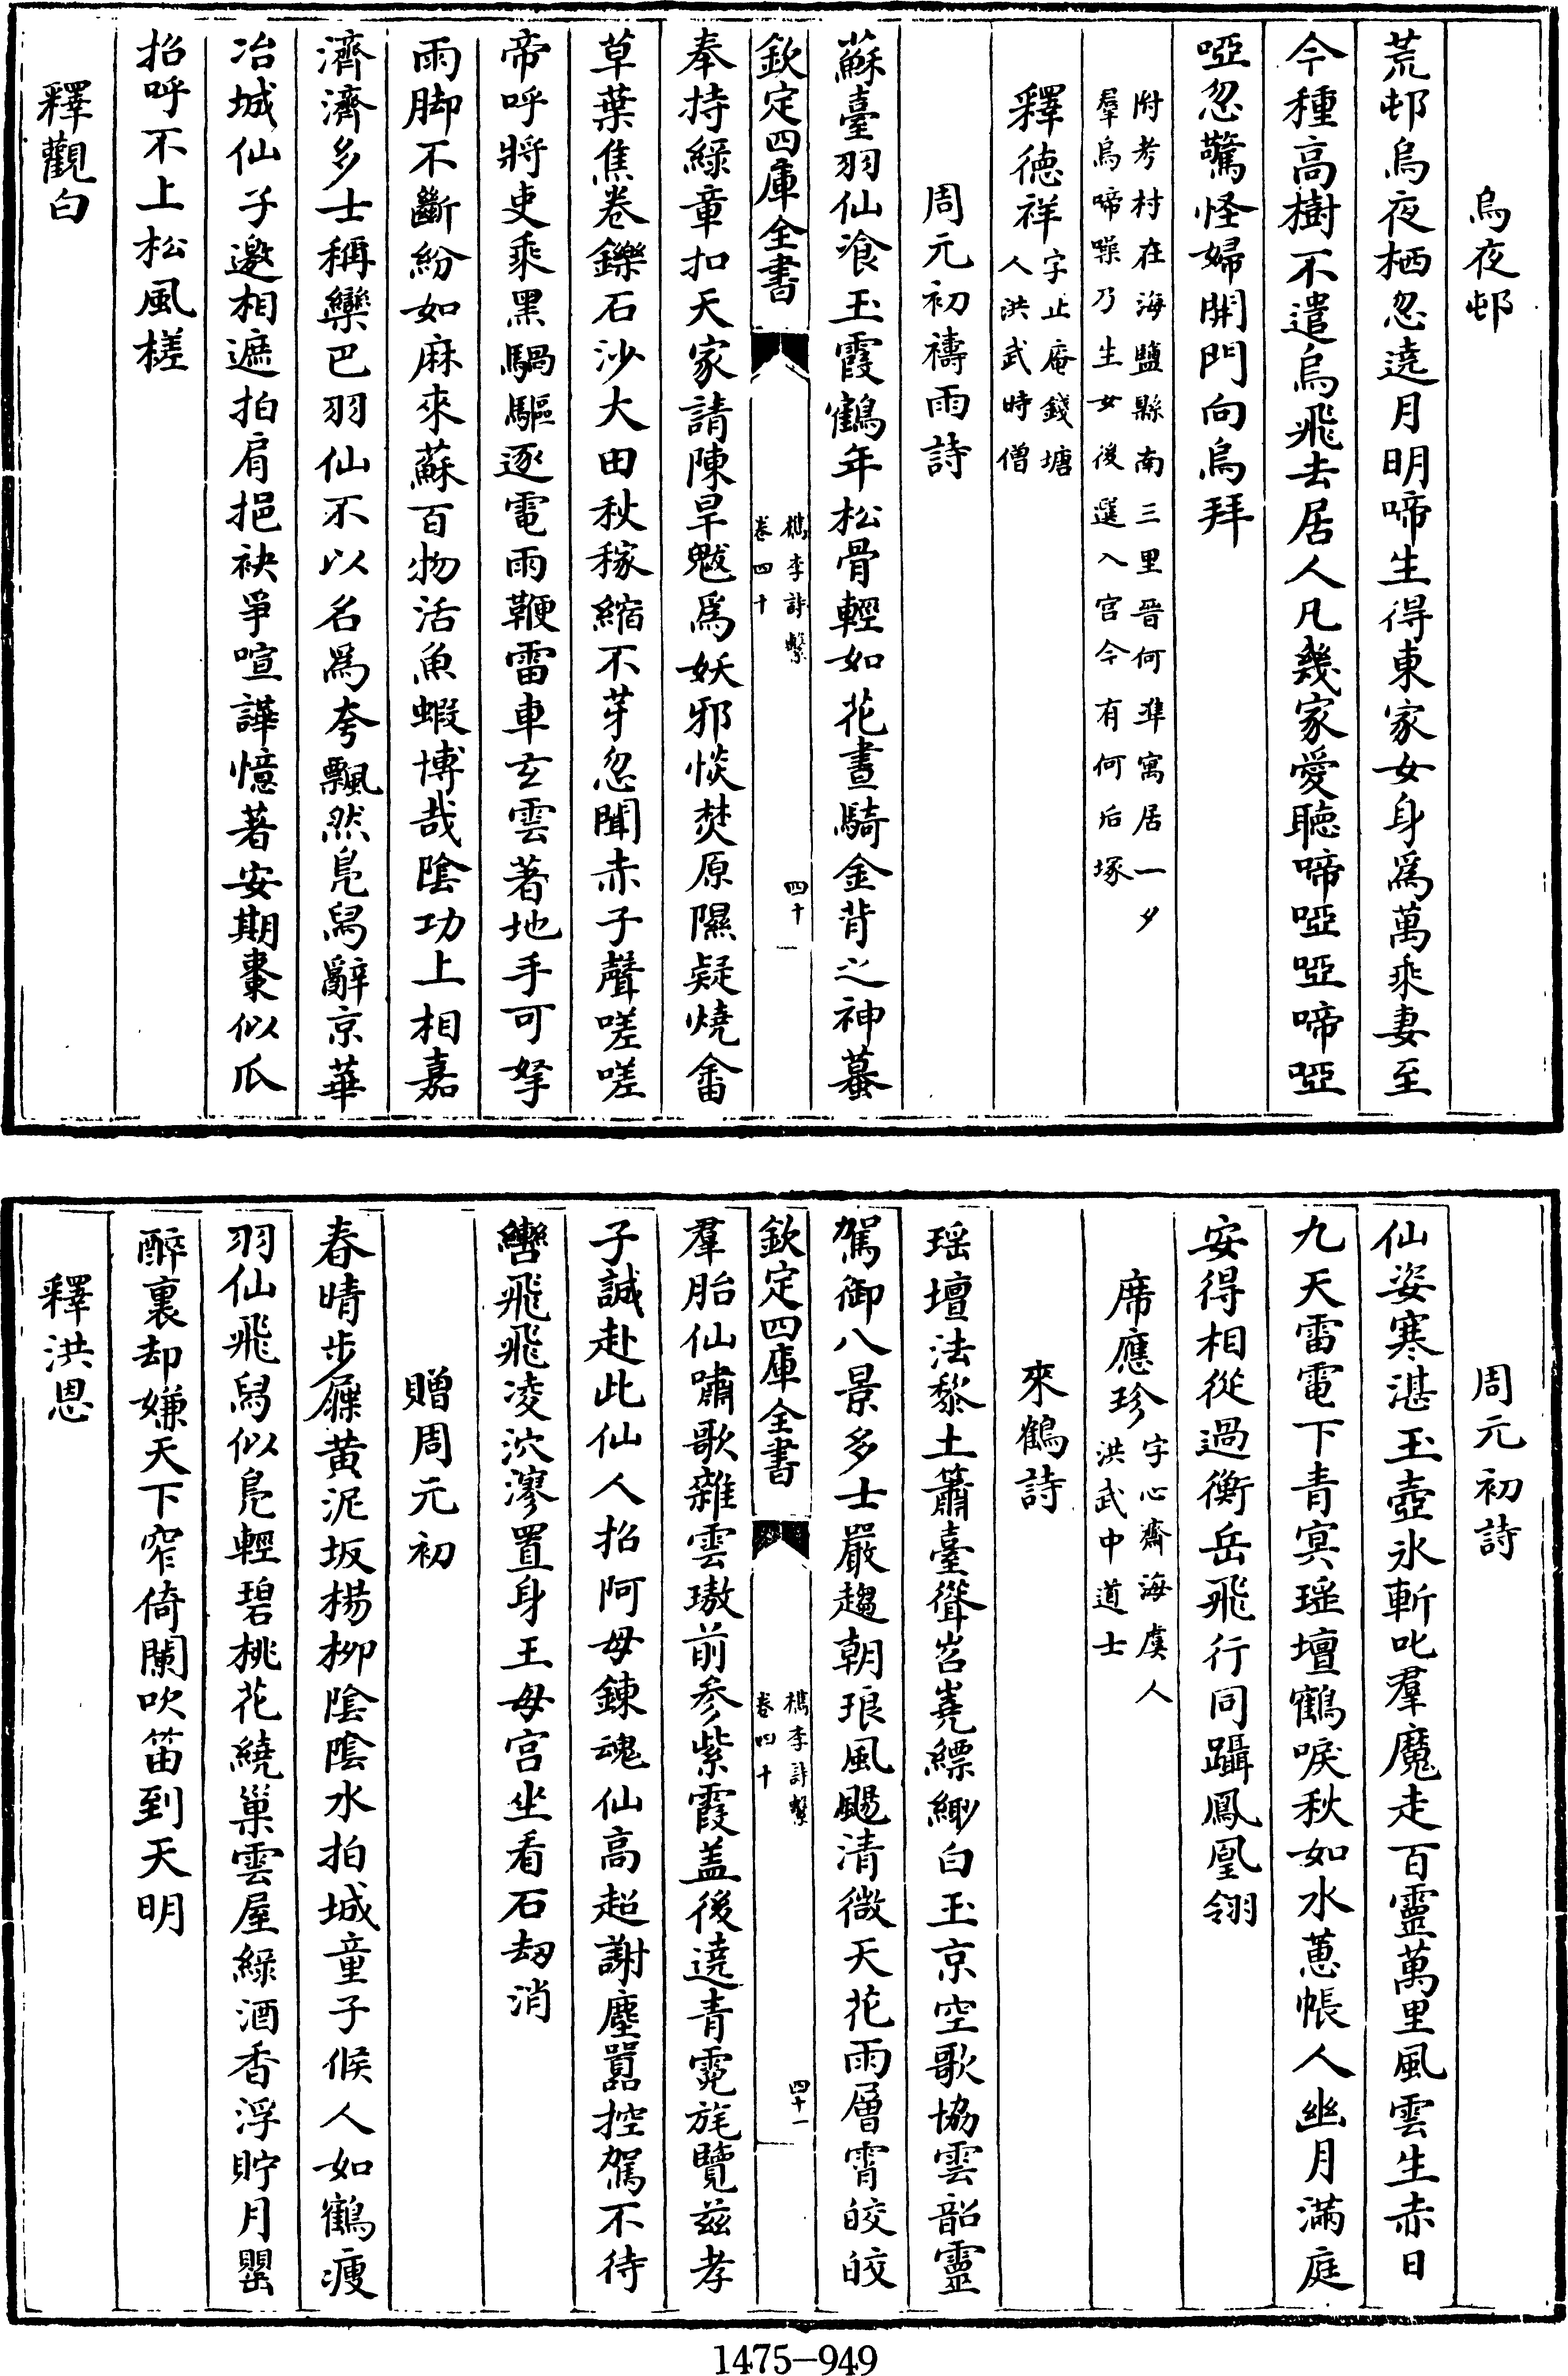 烏夜邨
荒邨烏夜栖忽遶月明啼生得東家女身爲萬乘妻至
今種高樹不遣烏飛去居人凡幾家愛聽啼啞啞啼啞
啞忽驚怪婦開門向烏拜
附考村在海鹽縣南三里晉何準寓居一夕
羣烏啼噪乃生女後選入宫今有何后塚
釋德祥字止庵錢塘
人洪武時僧
周元初禱雨詩
蘇臺羽仙飡玉霞鶴年松骨輕如花晝騎金背之神蟇
欽定四庫全書
檇李詩繫
卷四十
四十
奉持綠章扣天家請陳旱魃爲妖邪惔焚原隰疑燒畬
草葉焦卷鑠石沙大田秋稼縮不芽忽聞赤子聲嗟嗟
帝呼將吏乘黑騧驅逐電雨鞭雷車玄雲著地手可拏
雨脚不斷紛如麻來蘇百物活魚蝦博哉陰功上相嘉
濟濟多士稱欒巴羽仙不以名爲夸飄然鳬舄辭京華
冶城仙子邀相遮拍肩挹袂爭喧譁憶著安期棗似瓜
招呼不上松風槎
釋觀白
周元初詩
仙姿寒湛玉壺氷斬叱羣魔走百靈萬里風雲生赤日
九天雷電下青冥瑶壇鶴唳秋如水蕙帳人幽月滿庭
安得相從過衡岳飛行同躡鳳凰翎
席應珍字心齋海虞人
洪武中道士
來鶴詩
瑶壇法黎土簫臺聳岧嶤縹緲白玉京空歌協雲韶靈
駕御八景多士嚴趨朝琅風颺清微天花雨層霄皎皎
欽定四庫全書
檇李詩繫
卷四十
四十一
羣胎仙嘯歌雜雲璈前參紫霞盖後遶青霓旄覽兹孝
子誠赴此仙人招阿母鍊魂仙高超謝塵囂控駕不待
轡飛飛凌泬漻置身王母宫坐看石刼消
贈周元初
春晴步屧黄泥坂楊柳陰陰水拍城童子候人如鶴瘦
羽仙飛舄似鳬輕碧桃花繞巢雲屋綠酒香浮貯月罌
醉裏却嫌天下窄倚闌吹笛到天明
釋洪恩
1475-949